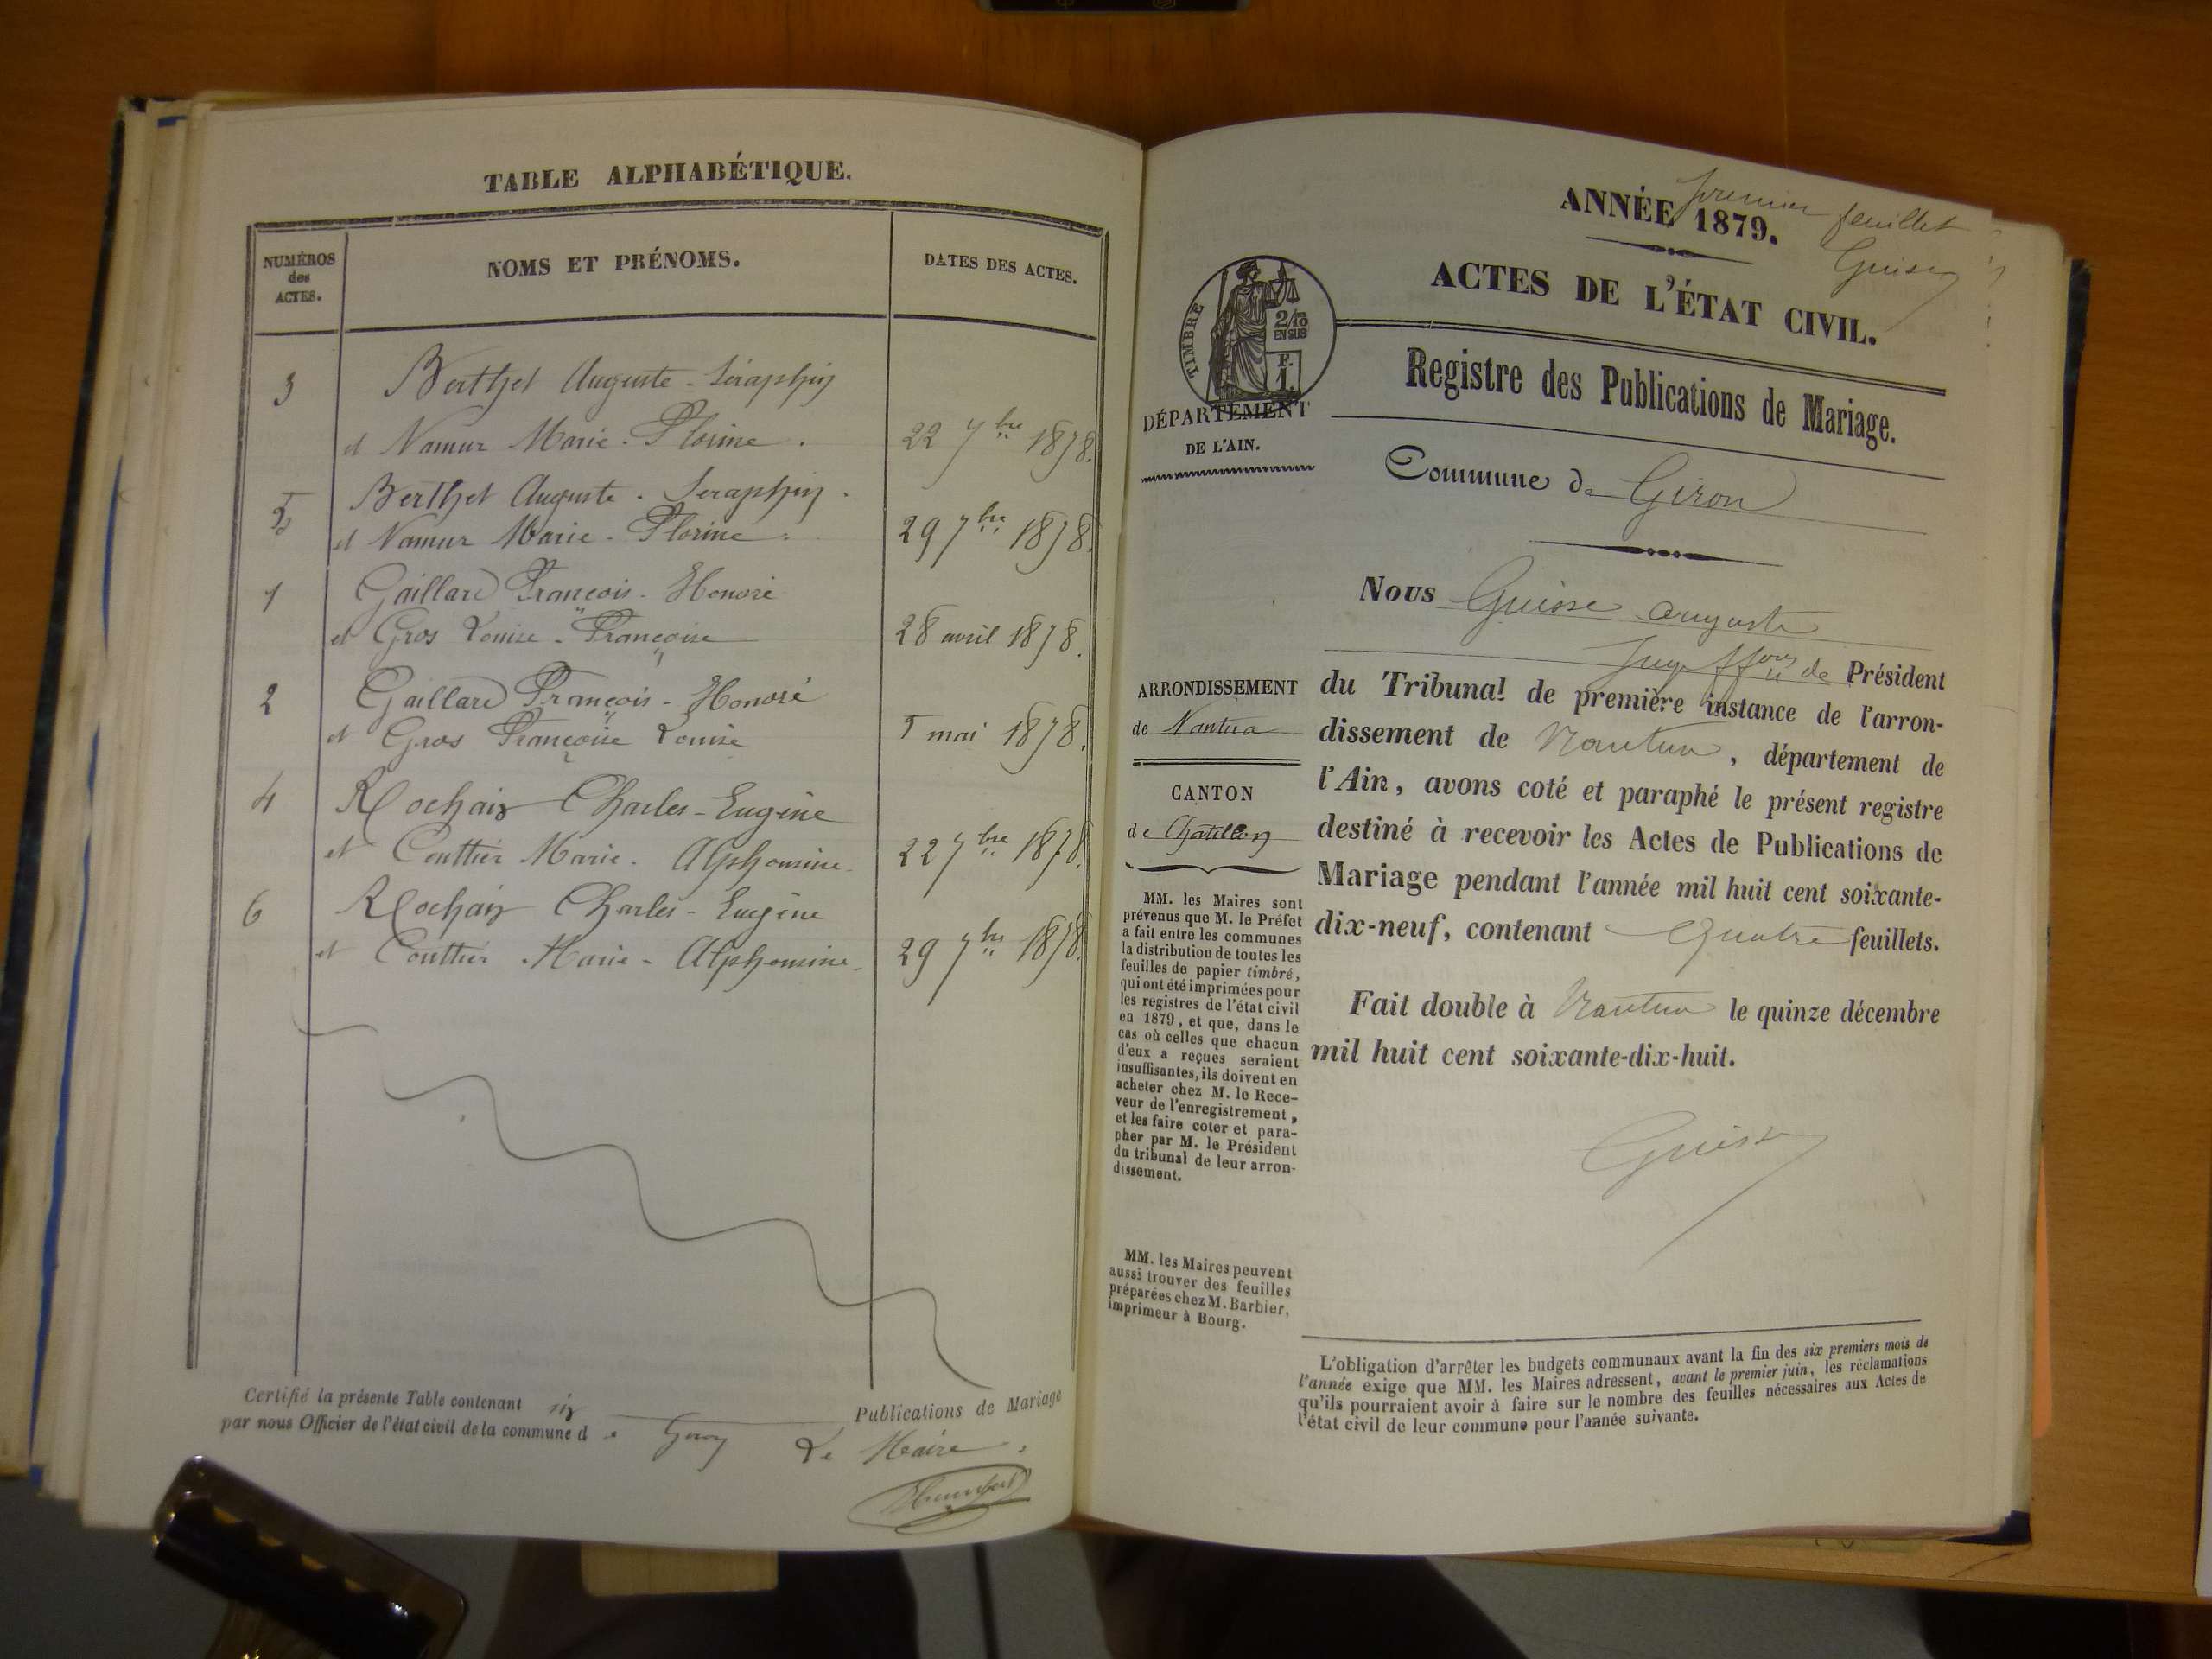 TABLE ALPHABÉTIQUE.
NUMÉROS des ACTES.
NOMS ET PRÉNOMS.
DATES DES ACTES.
3 Berthet Auguste - Séraphin
et Namur Marie - Florine . 22 7bre 1878.
5 Berthet Auguste - Seraphin .
et Namur Marie - Florine . 29 7bre 1878.
1 Gaillard François - Honoré
et Gros Louise - Françoise 28 avril 1878.
2 Gaillard François - Honoré
et Gros Françoise Louise 5 mai 1878.
4 Rochaix Charles - Eugène
et Couttier Marie - Alphonsine 22 7bre 1878.
6 Rochaix Charles - Eugène
et Couttier Marie - Alphonsine 29 7bre 1878.
Certifié la présente Table contenant six Publications de Mariage
par nous Officier de l'état civil de la commune de Giron Le Maire .
premier feuillet
ANNÉE 1879.
Guisse
ACTES DE L'ÉTAT CIVIL.
TIMBRE
2/10
EN SUS
F.
1.
Registre des Publications de Mariage.
DÉPARTEMENT
DE L'AIN.
Commune de Giron
Nous Guisse auguste
Juge ffons de Président
ARRONDISSEMENT
de Nantua
CANTON
de Chatillon
du Tribunal de première instance de l'arron-
dissement de Nantua, département de
l'Ain, avons coté et paraphé le présent registre
destiné à recevoir les Actes de Publications de
Mariage pendant l'année mil huit cent soixante-
dix-neuf, contenant quatre feuillets.
Fait double à Nantua le quinze décembre
mil huit cent soixante-dix-huit.
Guisse
MM. les Maires sont
prévenus que M. le Préfet
a fait entre les communes
la distribution de toutes les
feuilles de papier timbré,
qui ont été imprimées pour
les registres de l'état civil
en 1879, et que, dans le
cas où celles que chacun
d'eux a reçues seraient
insuffisantes, ils doivent en
acheter chez M. le Rece-
veur de l'enregistrement,
et les faire coter et para-
pher par M. le Président
du tribunal de leur arron-
dissement.
MM. les Maires peuvent
aussi trouver des feuilles
préparées chez M. Barbier,
imprimeur à Bourg.
L'obligation d'arrêter les budgets communaux avant la fin des six premiers mois de
l'année exige que MM. les Maires adressent, avant le premier juin, les réclamations
qu'ils pourraient avoir à faire sur le nombre des feuilles nécessaires aux Actes de
l'état civil de leur commune pour l'année suivante.